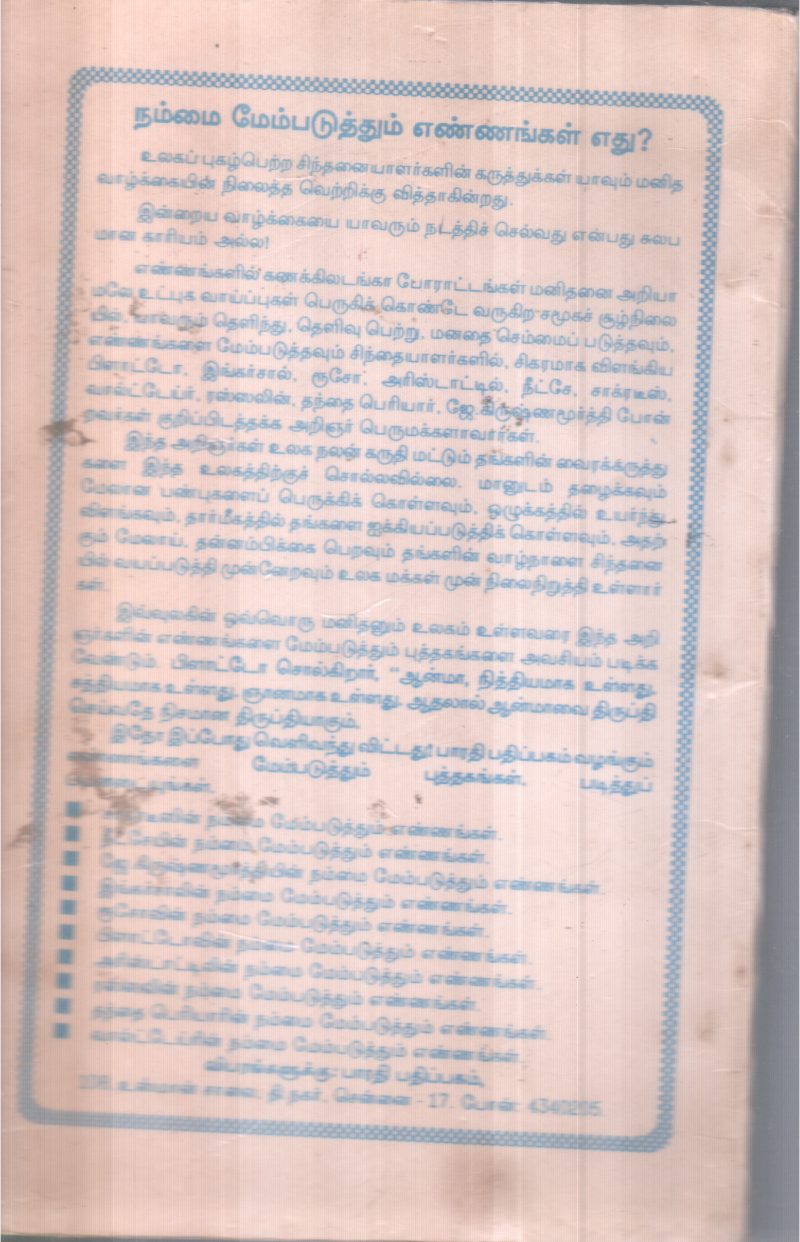 நம்மை மேம்படுத்தும் எண்ணங்கள் எது?
உலகப் புகழ்பெற்ற சிந்தனையாளர்களின் கருத்துக்கள் யாவும் மனித
வாழ்க்கையின் நிலைத்த வெற்றிக்கு வித்தாகின்றது.
இன்றைய வாழ்க்கையை யாவரும் நடத்திச் செல்வது என்பது சுலப
மான காரியம் அல்ல!
எண்ணங்களில் கணக்கிலடங்கா போராட்டங்கள் மனிதனை அறியா
மலே உட்புக வாய்ப்புகள் பெருகிக் கொண்டே வருகிற சமூகச் சூழ்நிலை
யில், யாவரும் தெளிந்து, தெளிவு பெற்று, மனதை செம்மைப் படுத்தவும்,
எண்ணங்களை மேம்படுத்தவும் சிந்தையாளர்களில், சிகரமாக விளங்கிய
பிளாட்டோ, இங்கர்சால், ரூசோ, அரிஸ்டாட்டில், நீட்சே, சாக்ரடீஸ்,
வால்டேய்ர், ரஸ்ஸலின், தந்தை பெரியார், ஜே.கிருஷ்ணமூர்த்தி போன்
றவர்கள் குறிப்பிடத்தக்க அறிஞர் பெருமக்களாவார்கள்.
இந்த அறிஞர்கள் உலக நலன் கருதி மட்டும் தங்களின் வைரக்கருத்து
களை இந்த உலகத்திற்குச் சொல்லவில்லை. மானுடம் தழைக்கவும்
மேலான பண்புகளைப் பெருக்கிக் கொள்ளவும், ஒழுக்கத்தில் உயர்ந்து
விளங்கவும், தார்மீகத்தில் தங்களை ஐக்கியப்படுத்திக் கொள்ளவும், அதற்
கும் மேலாய், தன்னம்பிக்கை பெறவும் தங்களின் வாழ்நாளை சிந்தனை
யில் வயப்படுத்தி முன்னேறவும் உலக மக்கள் முன் நிலைநிறுத்தி உள்ளார்
கள்.
இவ்வுலகின் ஒவ்வொரு மனிதனும் உலகம் உள்ளவரை இந்த அறி
ஞர்களின் எண்ணங்களை மேம்படுத்தும் புத்தகங்களை அவசியம் படிக்க
வேண்டும். பிளாட்டோ சொல்கிறார், "ஆன்மா, நித்தியமாக உள்ளது,
சத்தியமாக உள்ளது, ஞானமாக உள்ளது. ஆதலால் ஆன்மாவை திருப்தி
செய்வதே நிசமான திருப்தியாகும்.
இதோ இப்போது வெளிவந்து விட்டது! பாரதி பதிப்பகம் வழங்கும்
மேம்படுத்தும் புத்தகங்கள், படித்துப்
நம்மை மேம்படுத்தும் எண்ணங்கள்.
நீட்சேயின் நம்மை மேம்படுத்தும் எண்ணங்கள்.
ஜே. கிருஷ்ணமூர்த்தியின் நம்மை மேம்படுத்தும் எண்ணங்கள்.
இங்கர்சாலின் நம்மை மேம்படுத்தும் எண்ணங்கள்.
ரூசோவின் நம்மை மேம்படுத்தும் எண்ணங்கள்.
பிளாட்டோவின் நம்மை மேம்படுத்தும் எண்ணங்கள்.
அரிஸ்டாட்டிலின் நம்மை மேம்படுத்தும் எண்ணங்கள்.
ரஸ்ஸலின் நம்மை மேம்படுத்தும் எண்ணங்கள்.
தந்தை பெரியாரின் நம்மை மேம்படுத்தும் எண்ணங்கள்.
வால்ட்டேய்ரின் நம்மை மேம்படுத்தும் எண்ணங்கள்.
விபரங்களுக்கு:- பாரதி பதிப்பகம்,
108, உஸ்மான் சாலை, தி.நகர், சென்னை - 17. போன்: 4340205.